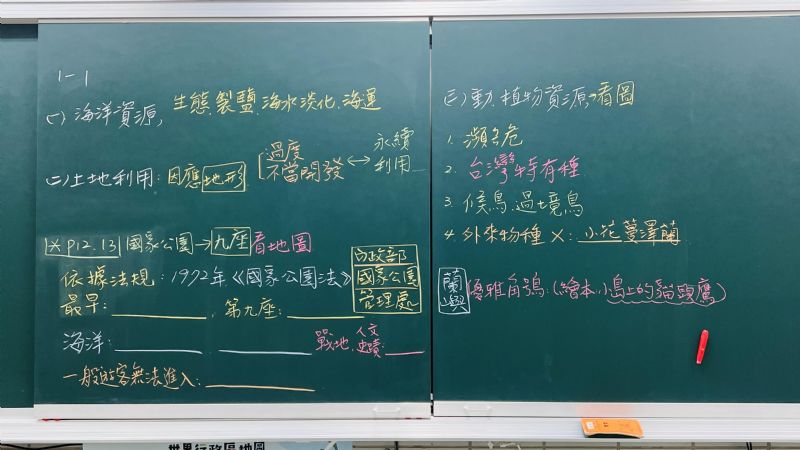 1-1
(一)海洋資源,生態、製鹽、海水淡化、海運
(二)土地利用:因應地形 過度 不當開發 ↔ 永續利用
*P12.13 國家公園→九座 看地圖
依據法規:1972年《國家公園法》 內政部 國家公園 管理處
最早:________,第九座:________
海洋:________ ________ 戰地、人文史蹟:____
一般遊客無法進入:________
(三)動、植物資源→看圖
1. 瀕危
2. 台灣特有種
3. 候鳥、過境鳥
4. 外來物種 X:小花蔓澤蘭
蘭嶼 優雅角鴞:(繪本,小島上的貓頭鷹)
世界行政區地圖